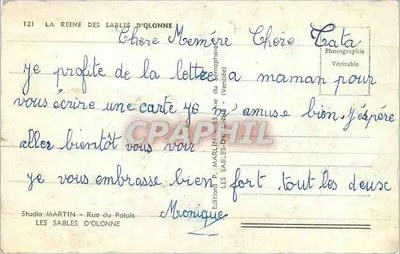 121 LA REINE DES SABLES D'OLONNE
Chere Memére Chere Tata
Photographie
Véritable
Je profite de la lettre a maman pour
vous écrire une carte je m'amuse bien. J'éspére
aller bientôt vous voir
je vous embrasse bien fort tout les deux
Monique
CPARPHIL
Editions P. MARLIN - 
LES SABLES-D'OLONNE - (Vendée)
Studio MARTIN - Rue du Palais
LES SABLES D'OLONNE